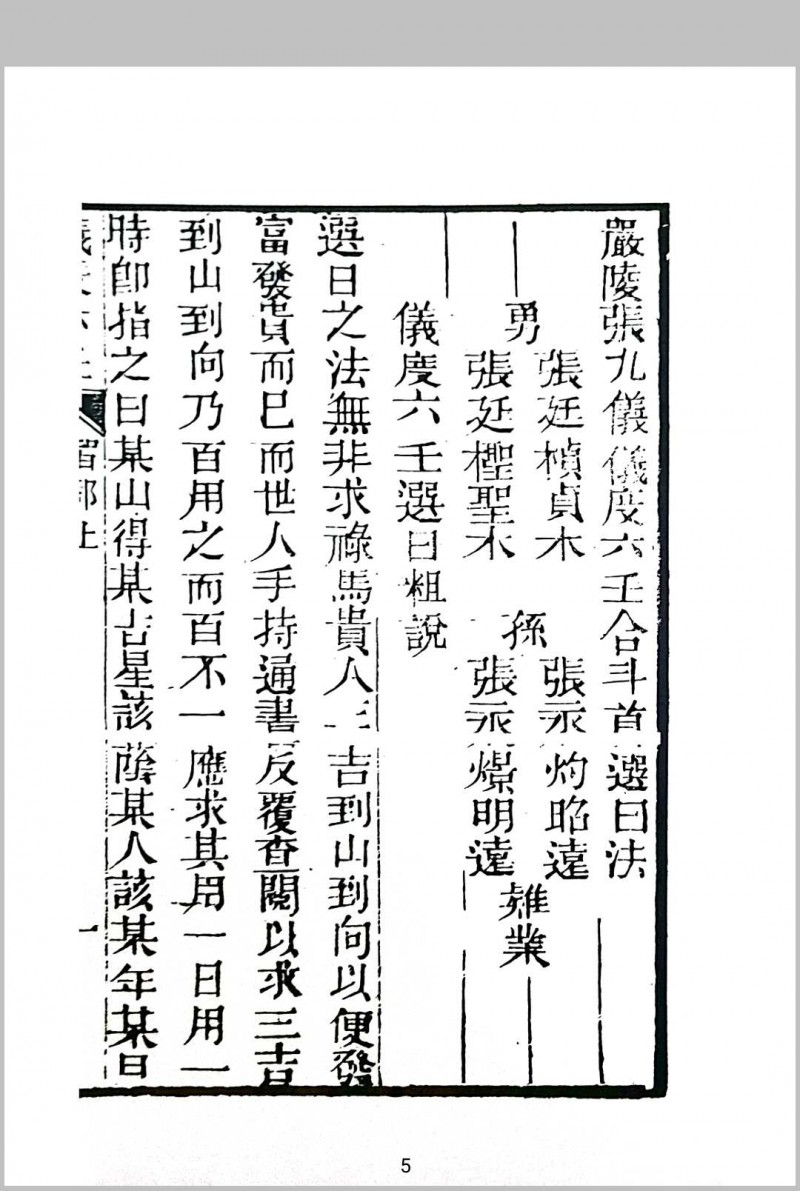 嚴陵張九儀儀度六壬合斗首選日法
勇 張廷楨貞木 孫 張永灼昭遠
張廷檉聖木 張永燝明遠 雜業
儀度六壬選日粗說
選日之法無非求祿馬貴人三吉到山到向以便發
富發貴而已而世人手持通書反覆查閱以求三吉
到山到向乃百用之而百不一應求其用一日用一
時卽指之曰某山得某吉星該蔭某人該某年某月
一
5